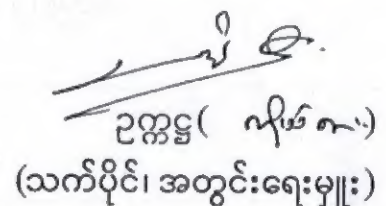 ဥက္ကဋ္ဌ( ကိုယ်စား)
(သက်ပိုင်၊ အတွင်းရေးမှူး)